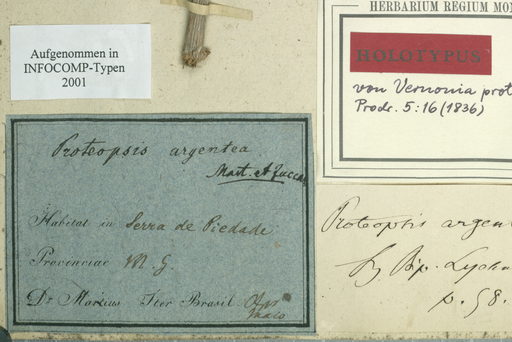 Aufgenommen in
INFOCOMP-Typen
2001
HERBARIUM REGIUM MON
HOLOTYPUS
von Vernonia prot
Prodr. 5:16 (1836)
Proteopsis argentea
Mart. et Zuccar
Habitat in Serra de Piedade
Provinciae M. G.
Dr Martius Iter Brasil.
Maio
Proteopsis argent
Sz Bip. Lychn
p. 58.